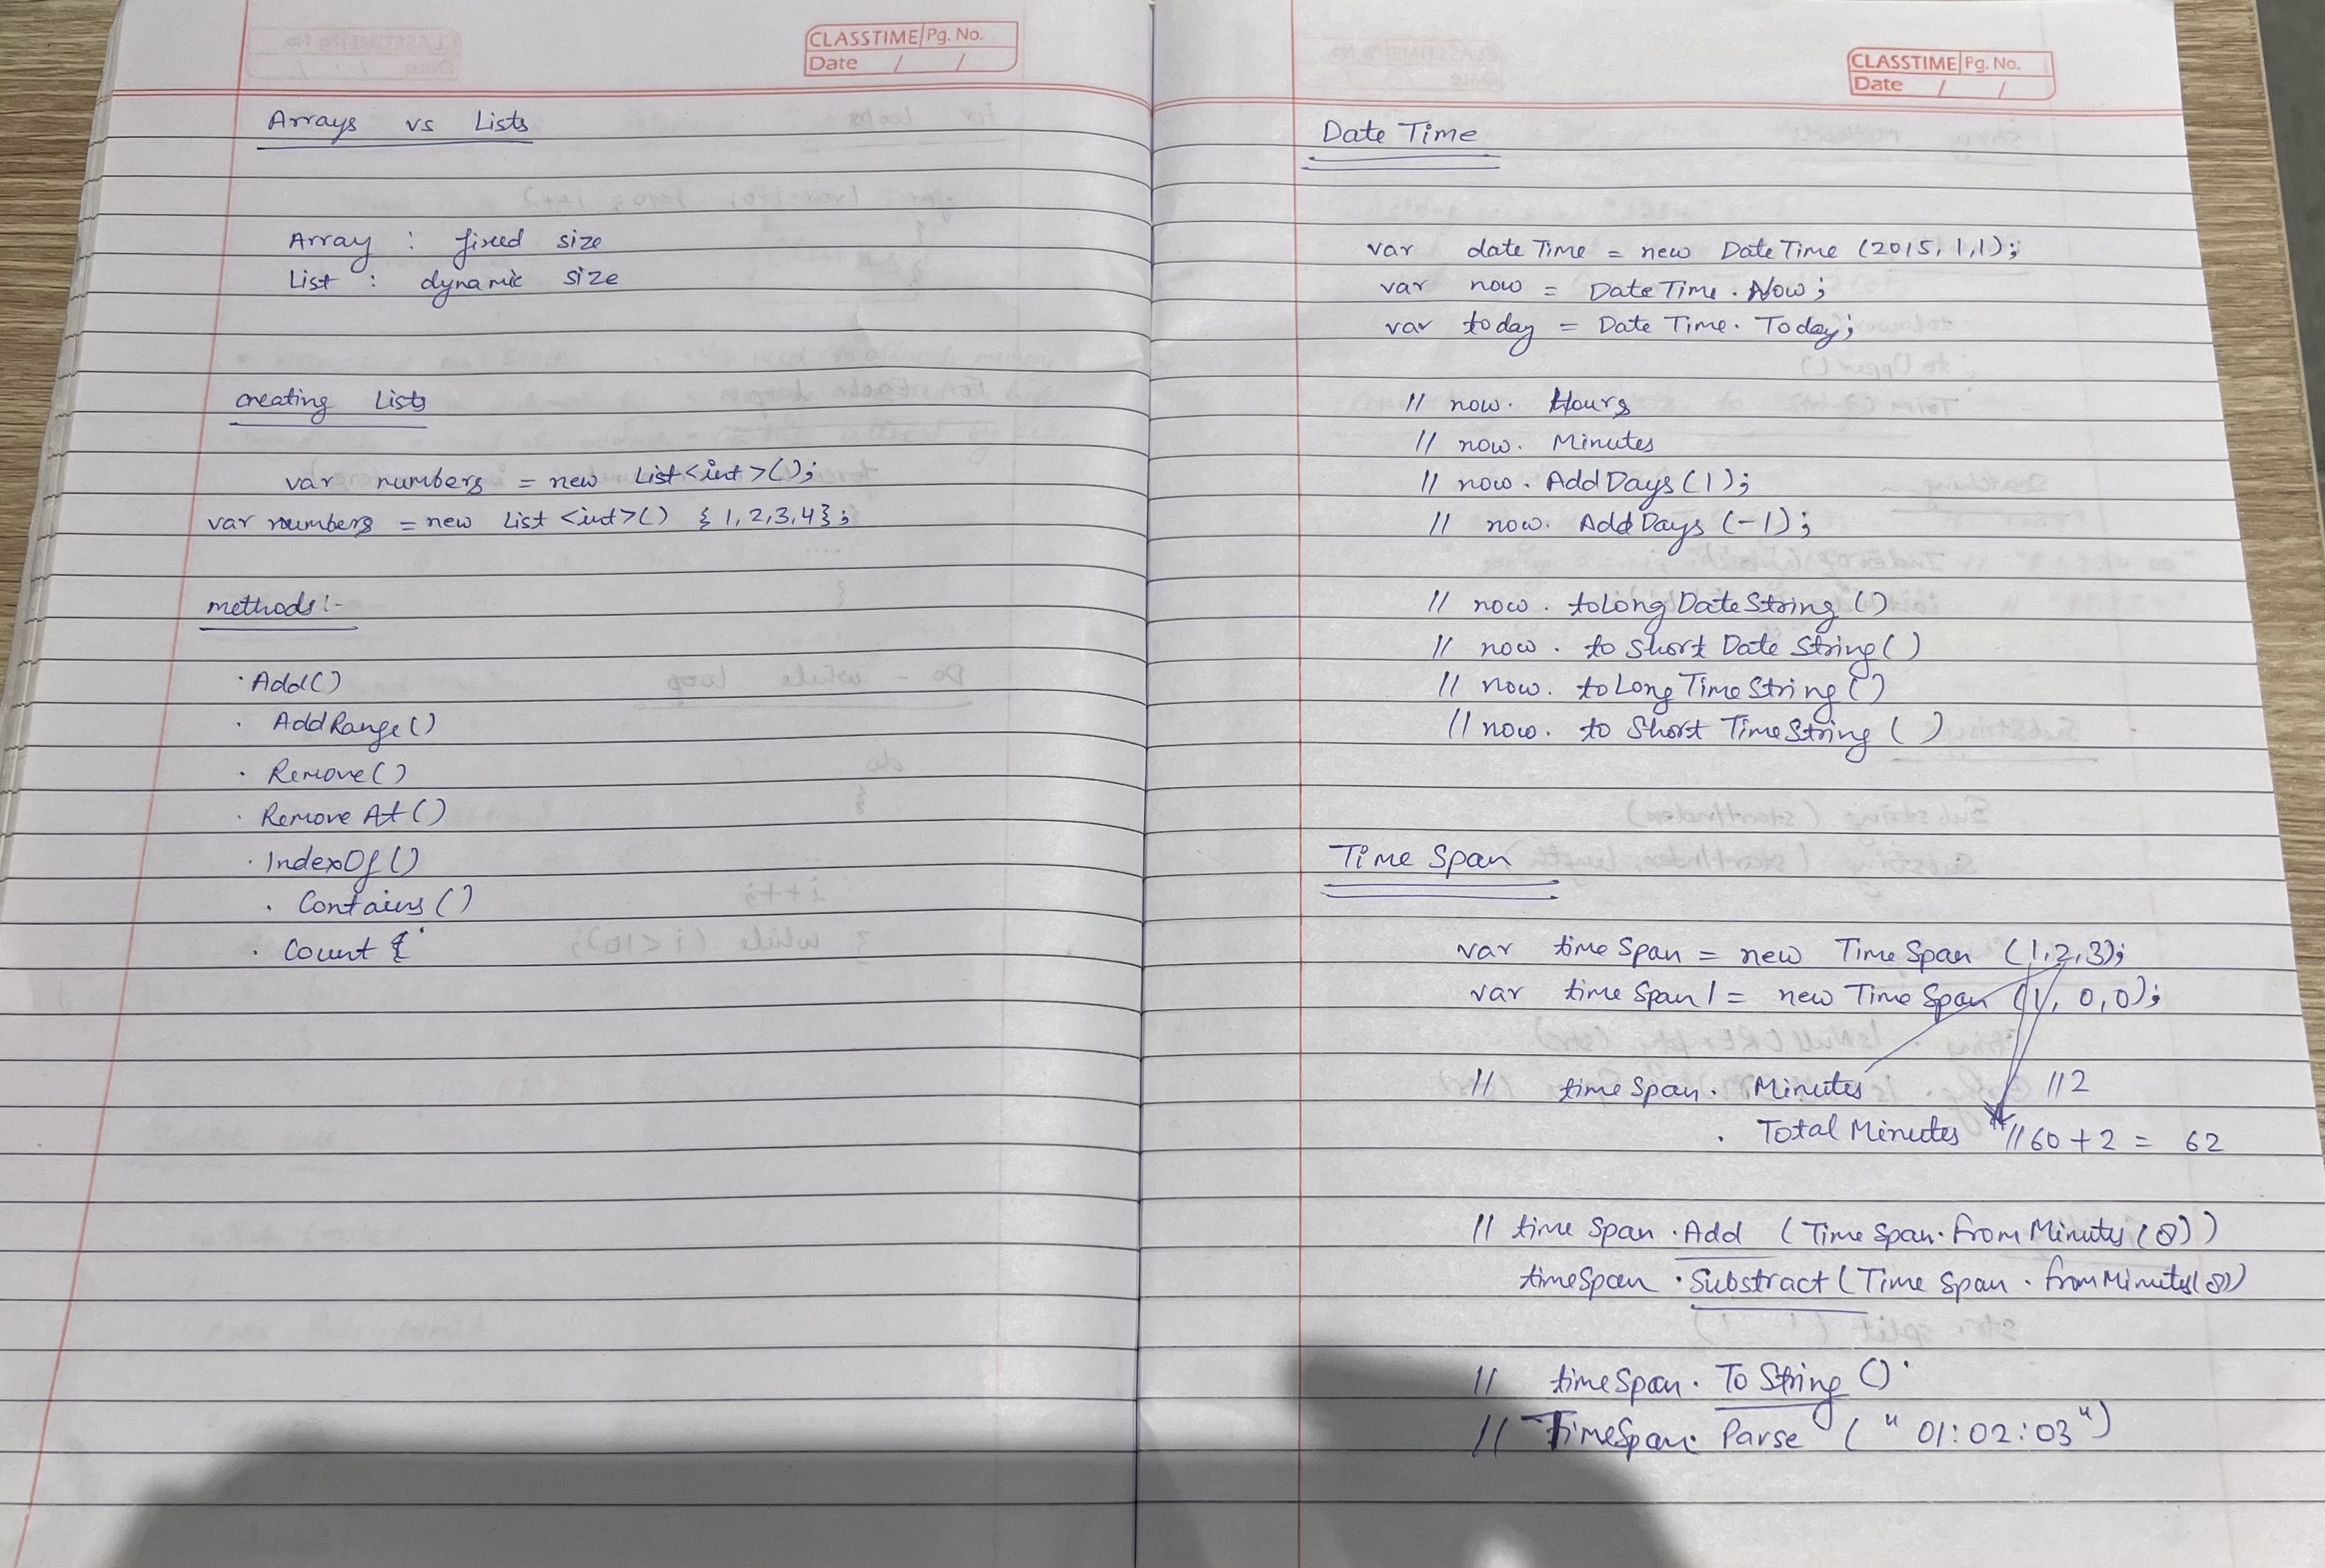 CLASSTIME Pg. No.
Date / /
Arrays vs Lists
Array : fixed size
List : dynamic size
creating Lists
var numbers = new List<int>();
var numbers = new List <int>() {1,2,3,4};
methods:-
· Add()
· AddRange()
· Remove()
· RemoveAt()
· IndexOf()
· Contains()
· Count {
CLASSTIME Pg. No.
Date / /
Date Time
var dateTime = new DateTime (2015, 1,1);
var now = DateTime.Now;
var today = DateTime.Today;
// now. Hours
// now. Minutes
// now. AddDays(1);
// now. AddDays (-1);
// now. toLongDateString()
// now. toShortDateString()
// now. toLongTimeString()
// now. toShortTimeString()
Time Span
var timeSpan = new TimeSpan (1,2,3);
var timeSpan1 = new TimeSpan (1, 0,0);
// timeSpan. Minutes //2
. Total Minutes //60+2 = 62
// timeSpan.Add (TimeSpan.fromMinutes(8))
timeSpan.Substract(TimeSpan.fromMinutes(8))
// timeSpan.ToString()
// TimeSpan.Parse ("01:02:03")